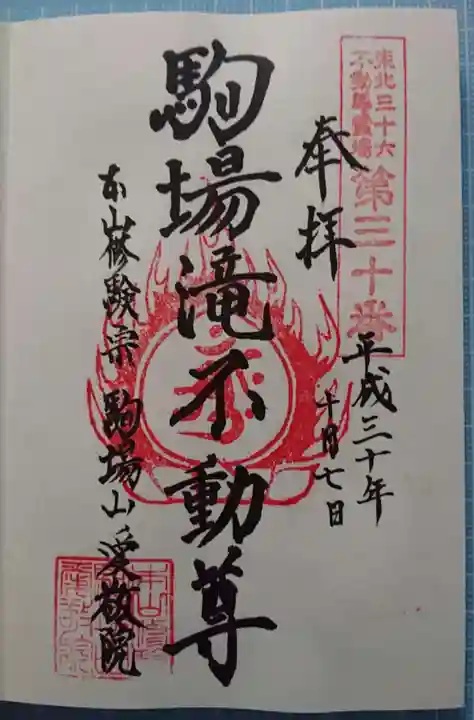 東北三十六
不動尊霊場
第三十番
奉拝
平成三十年
十月七日
駒場滝不動尊
本山修験宗 駒場山 愛敬院